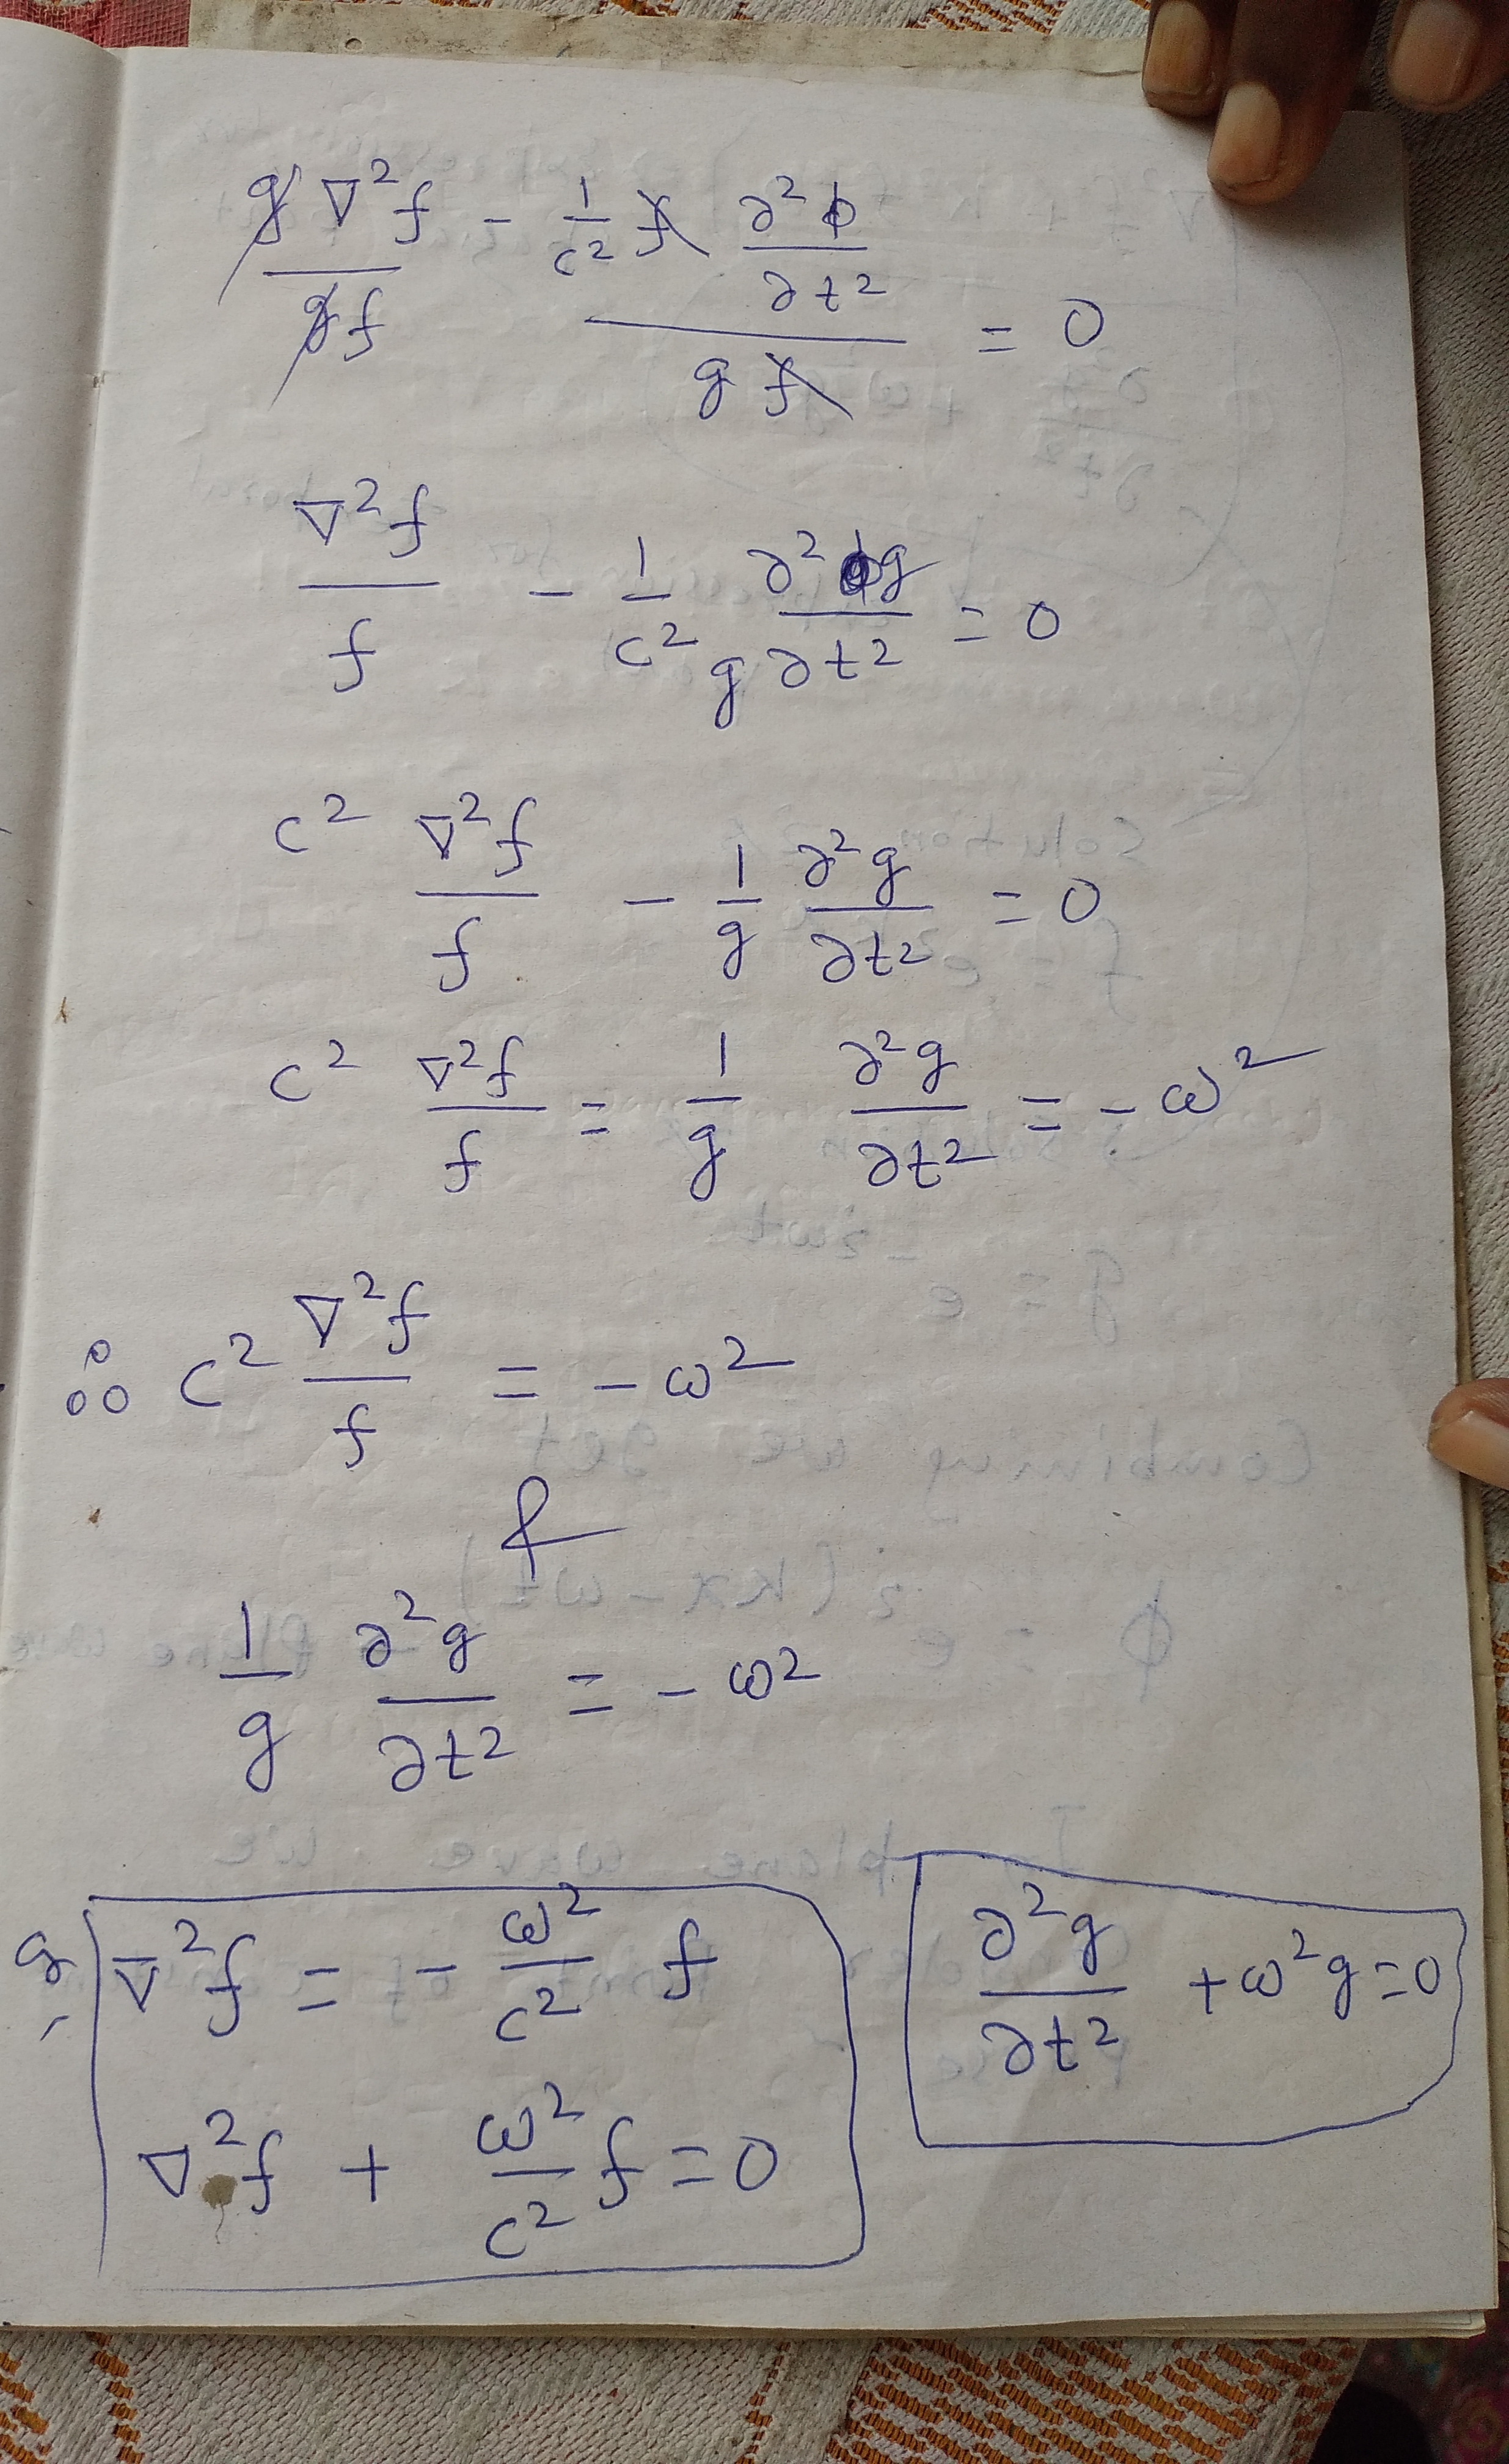 g∇²f/gf - 1/c² f ∂²ϕ/∂t² / gf = 0
∇²f/f - 1/c² ∂²g/g∂t² = 0
c² ∇²f/f - 1/g ∂²g/∂t² = 0
c² ∇²f/f = 1/g ∂²g/∂t² = -ω²
∴ c² ∇²f/f = -ω²
&
1/g ∂²g/∂t² = -ω²
∇²f = -ω²/c² f
∇²f + ω²/c² f = 0
∂²g/∂t² + ω²g = 0